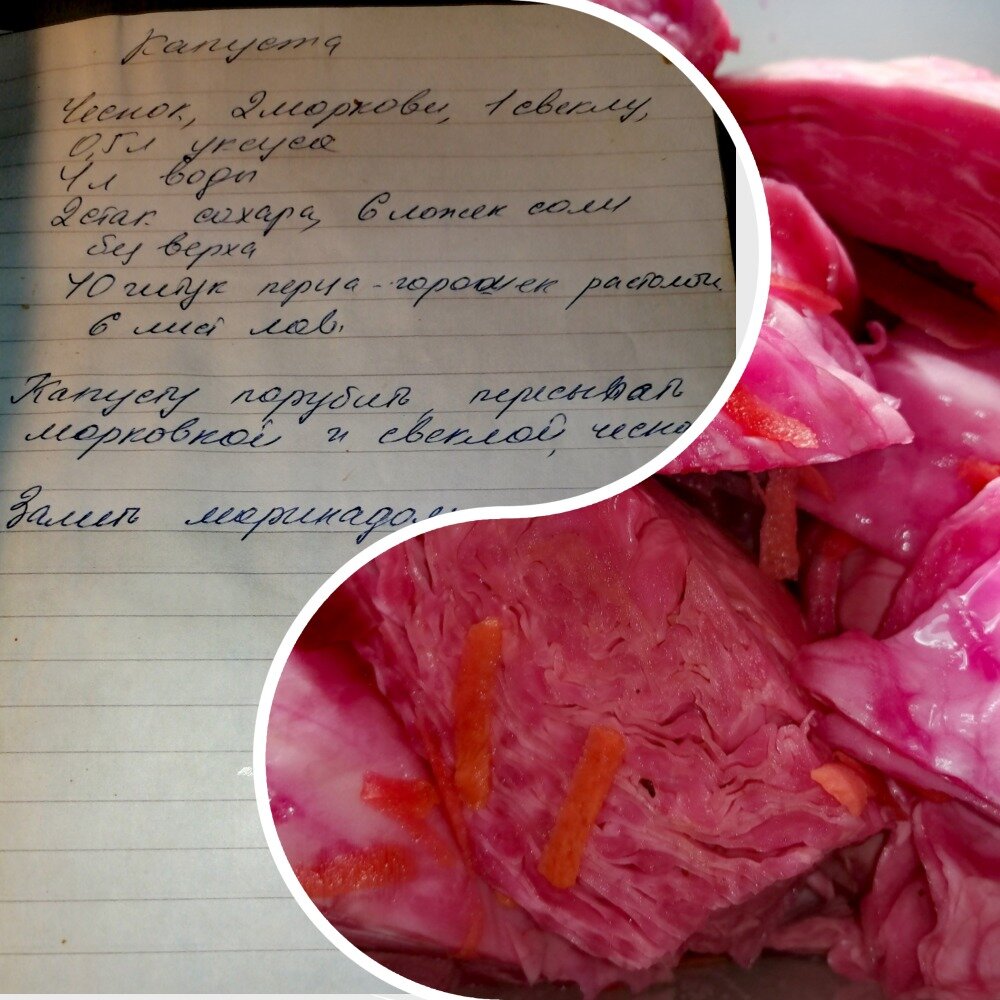 Капуста
Чеснок, 2 моркови, 1 свеклу,
0,5 л уксуса
4 л воды
2 стак сахара, 6 ложек соли
без верха
40 штук перца-горошек растолочь
6 лист лав.
Капусту порубить пересыпать
морковкой и свеклой, чесно
Залить маринадом